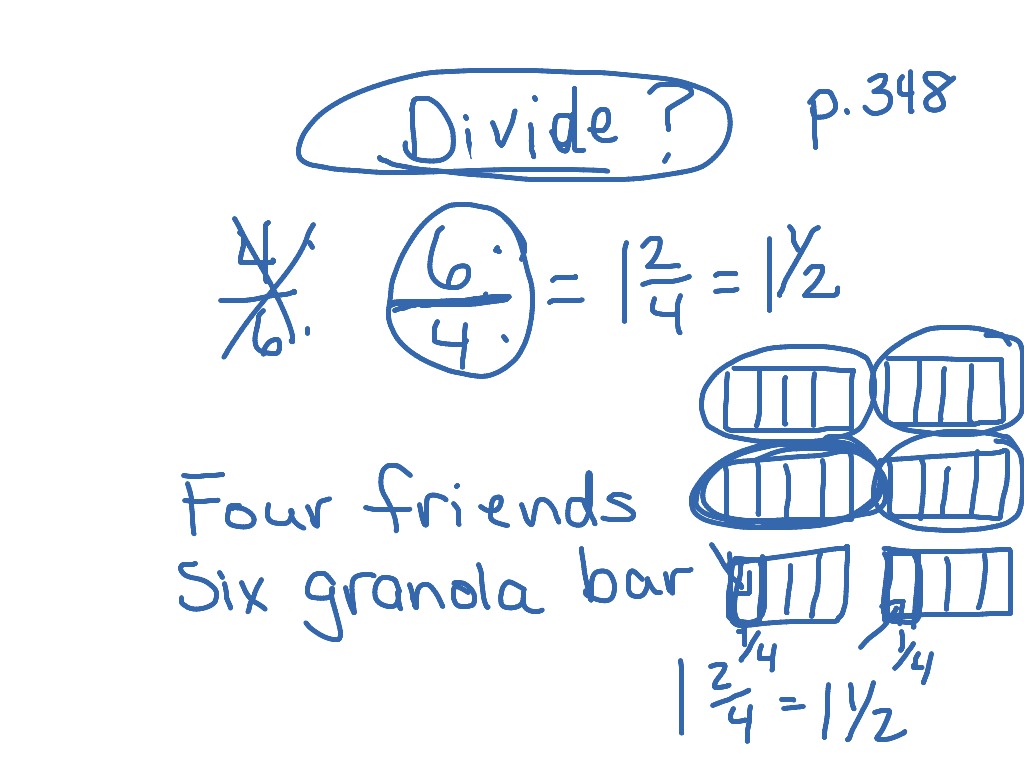 Divide?
p. 348
4/6 6/4 = 1 2/4 = 1 1/2
Four friends
Six granola bar
1/4 1/4
1 2/4 = 1 1/2